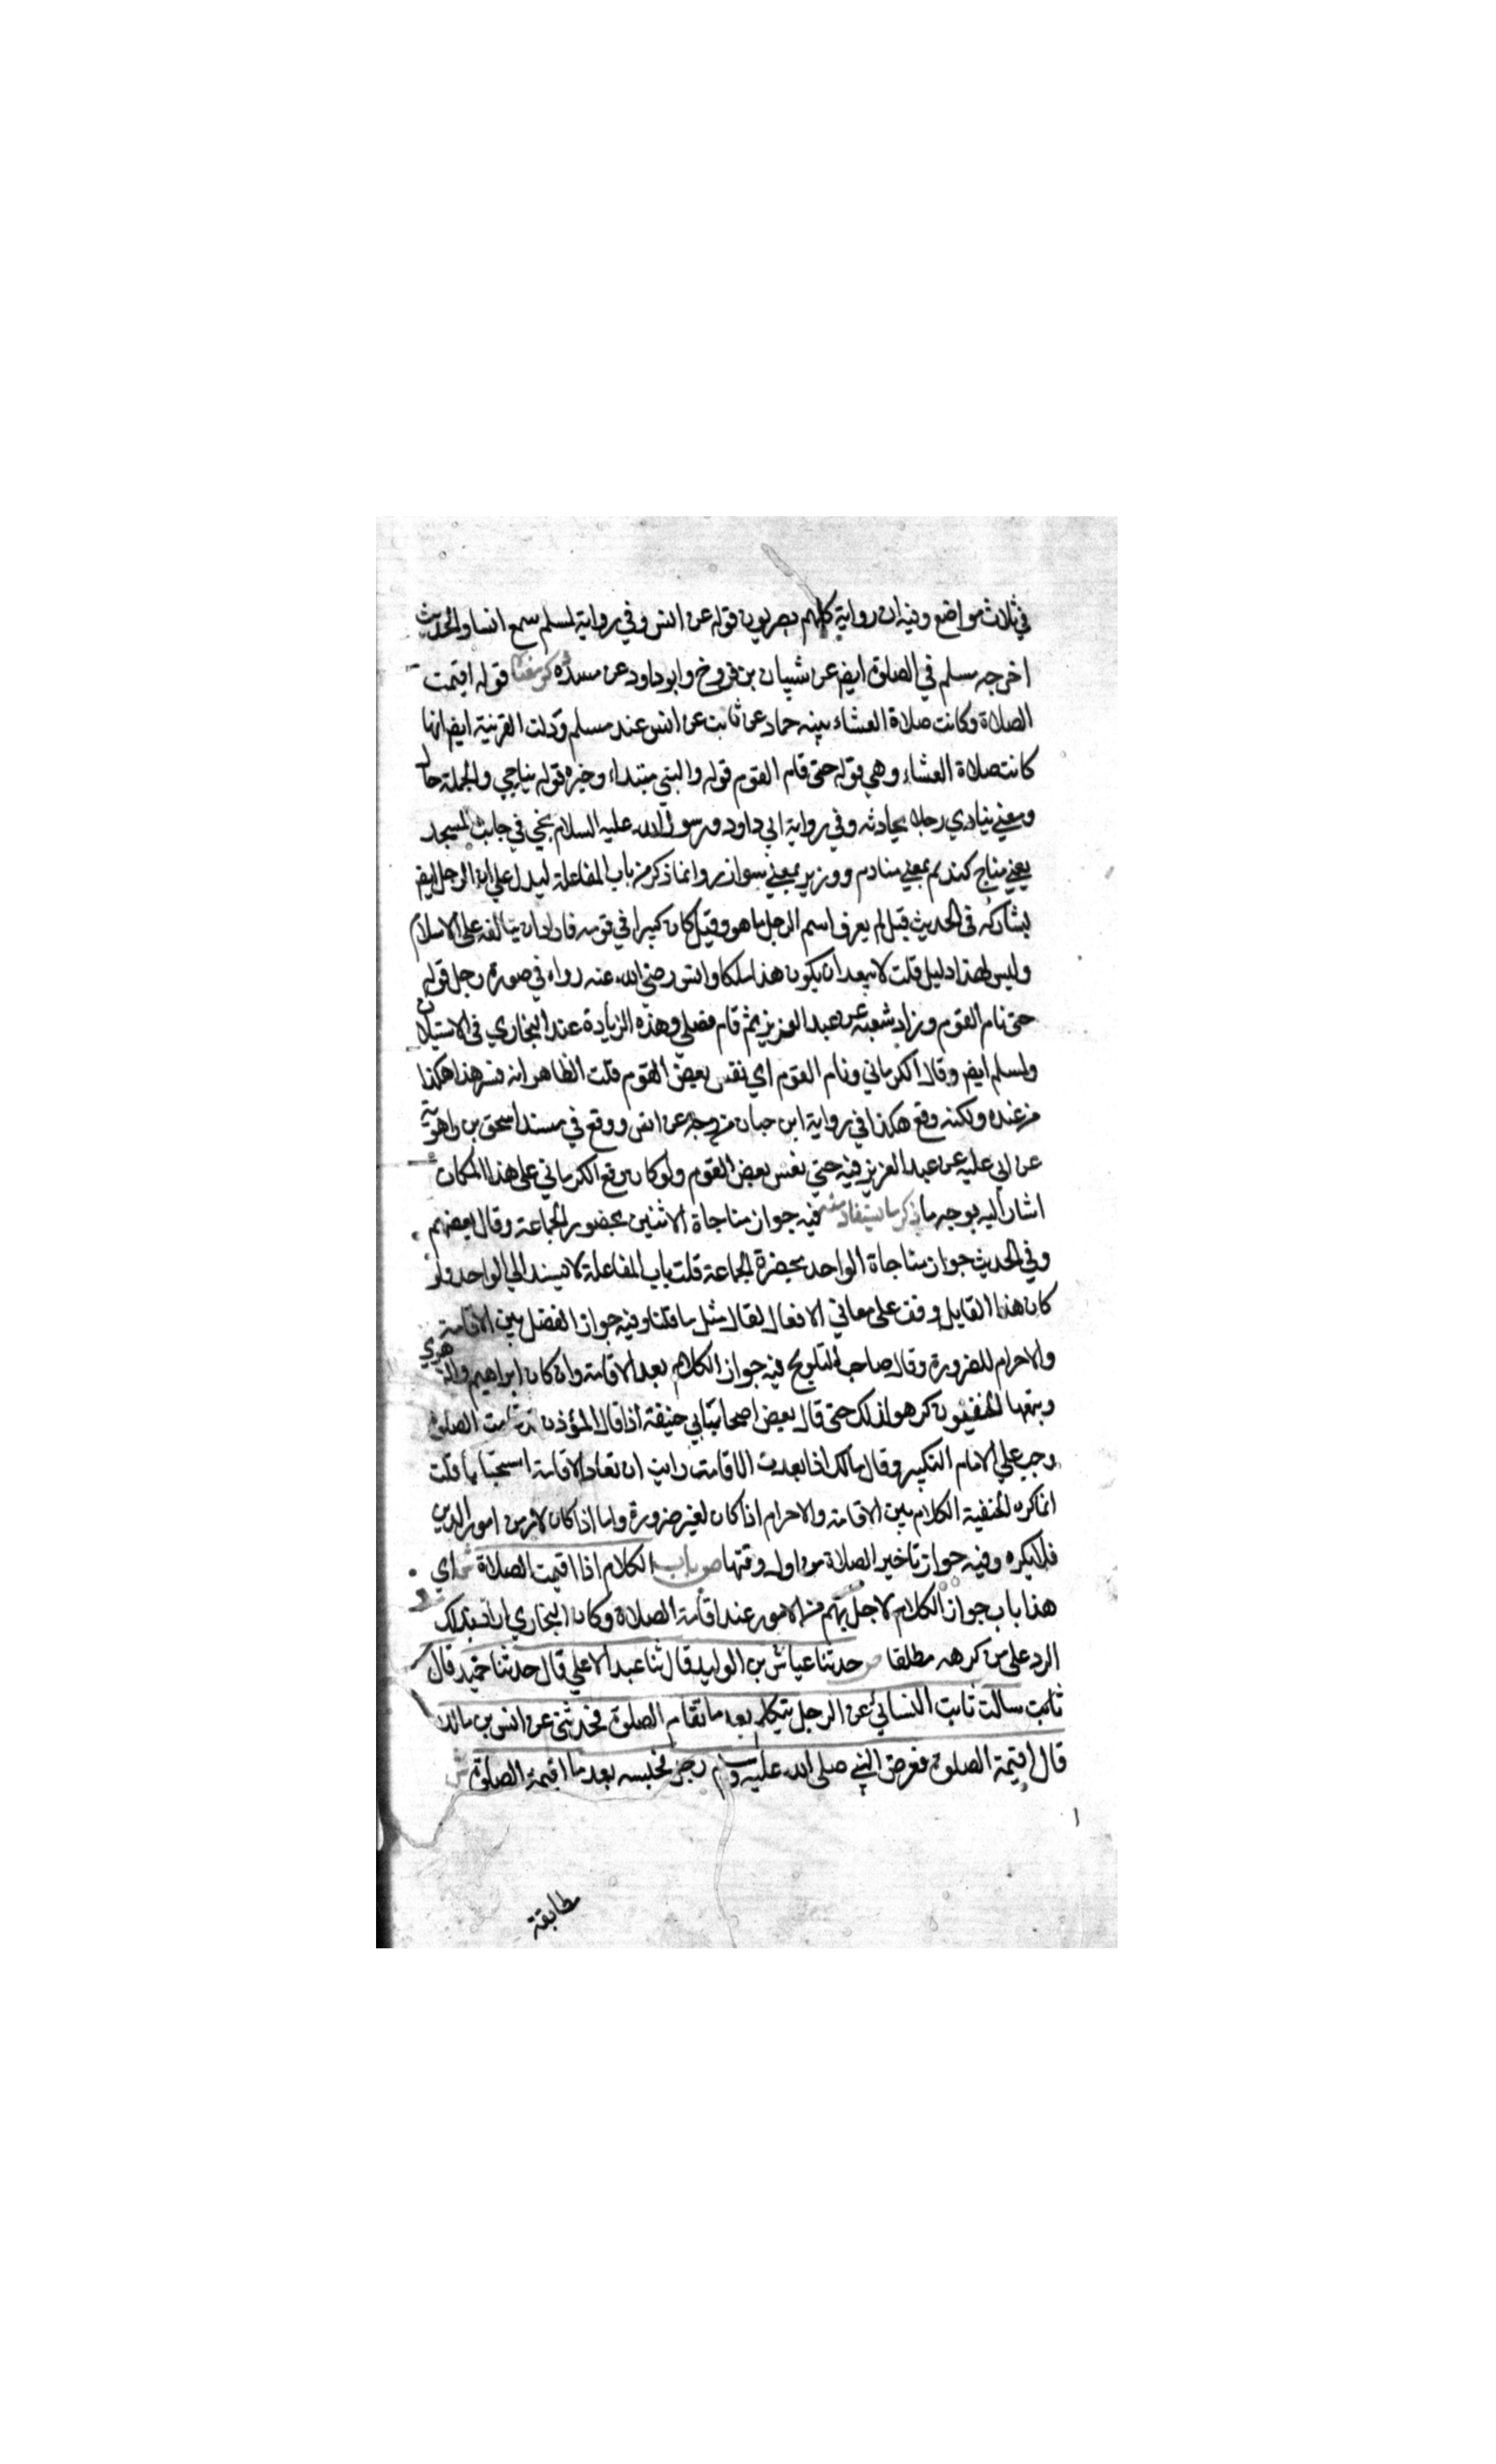 في ثلاث مواضع وفيه ان رواية كلهم بصريون قوله عن انس وفي رواية لمسلم سمع انسا والحديث
اخرجه مسلم في الصلوة ايضم عن شيبان بن فروخ وابو داود عن مسدد ذكر معناه قوله اقيمت
الصلاة وكانت صلاة العشاء بينه حماد عن ثابت عن انس عند مسلم ودلت القرينة ايضا انها
كانت صلاة العشاء وهي قوله حتى قام القوم قوله والنبي مبتداء وخبره قوله يناجي والجملة حال
ومعني ينادي رجلا يحادثه وفي رواية ابي داود ورسول الله عليه السلام نجي في جانب المسجد
يعني مناج كنديم بمعني منادم ووزير بمعني موازر وانما ذكر من باب المفاعلة ليدل علي ان الرجل ايضم
يشاركه في الحديث قيل لم يعرف اسم الرجل ما هو وقيل كان كبيرا في قومه فاراد ان يتالفه على الاسلام
وليس لهذا دليل قلت لا يبعد ان يكون هذا ملكا وانس رضي الله عنه رواه في صورة رجل قوله
حتى نام القوم وزاد شعبة عن عبد العزيز ثم قام فصلي وهذه الزيادة عند البخاري في الاستيذان
ولمسلم ايضم وقال الكرماني ونام القوم اي نعس بعض القوم قلت الظاهر انه فسر هذا هكذا
من عنده ولكنه وقع هكذا في رواية ابن حبان من وجه عن انس ووقع في مسند اسحق بن راهوية
عن ابي علية عن عبد العزيز فيه حتي نعس بعض القوم ولو كان وقع الكرماني على هذا المكان
اشار اليه بوجه ما ذكر ما يستفاد منه فيه جواز مناجاة الاثنين بحضور الجماعة وقال بعضهم
وفي الحديث جواز مناجاة الواحد بحضرة الجماعة قلت باب المفاعلة لا يسند الي الواحد ولو
كان هذا القايل وقف على معاني الافعال لقال مثل ما قلنا وفيه جواز الفصل بين الاقامة
والاحرام للضرورة وقال صاحب التلويح فيه جواز الكلام بعد الاقامة وان كان ابراهيم والزهري
وتبعهما الحنفيون كرهوا ذلك حتى قال بعض اصحاب ابي حنيفة اذا قال المؤذن قد قامت الصلوة
وجب علي الامام التكبير وقال مالك اذا بعدت الاقامة رايت ان تعاد الاقامة استحبابا قلت
انما كره الحنفية الكلام بين الاقامة والاحرام اذا كان لغير ضرورة واما اذا كان لامر من امور الدين
فلا يكره وفيه جواز تاخير الصلاة من اول وقتها ص باب الكلام اذا اقيمت الصلاة ش اي
هذا باب جواز الكلام لاجل مهم من الامور عند اقامة الصلاة وكان البخاري اراد بذلك
الرد على من كرهه مطلقا ص حدثنا عياش بن الوليد قال ثنا عبد الاعلي قال حدثنا حميد قال
ثابت سالت ثابت النسائي عن الرجل يتكلم بعد ما تقام الصلوة فحدثني عن انس بن مالك
قال اقيمة الصلوة فعرض النبي صلى الله عليه وسلم رجل فحبسه بعد ما اقيمة الصلوة ش
مطابقة